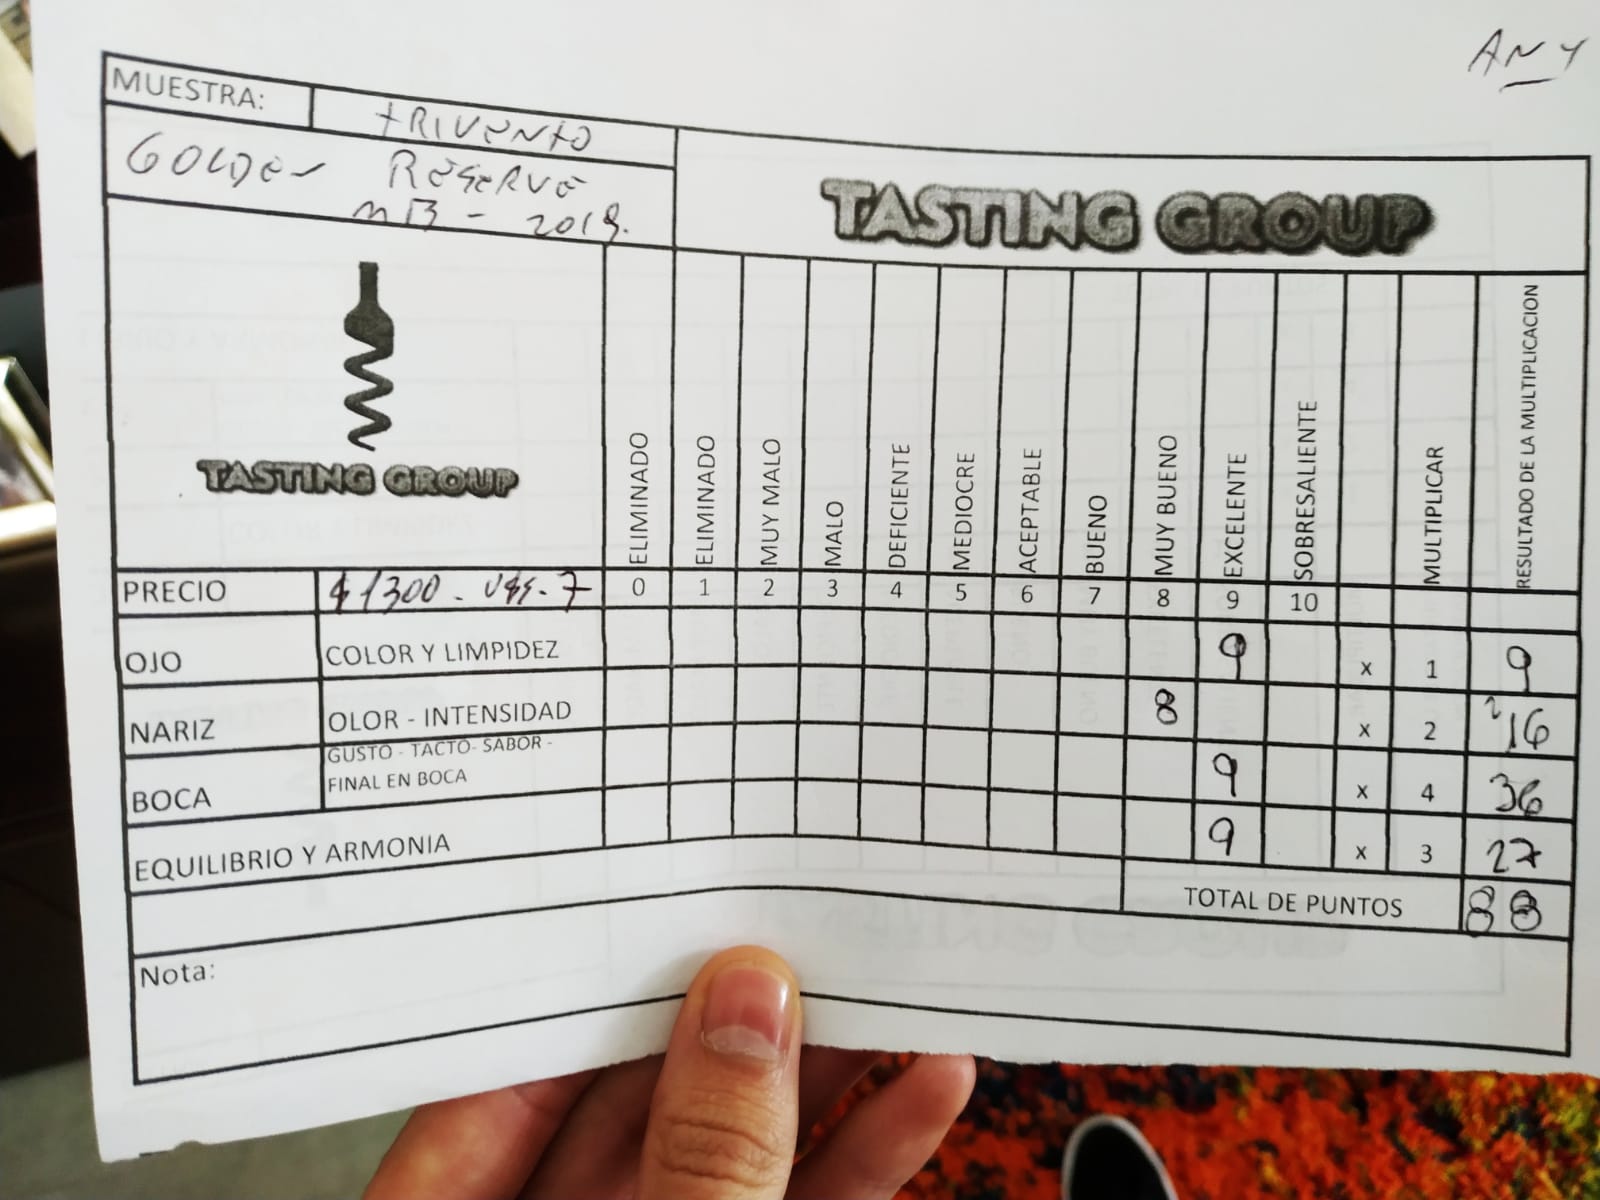 ANY
MUESTRA: tRIVENTO
GOLDEN RESERVE
MB - 2019.
TASTING GROUP
TASTING GROUP
ELIMINADO ELIMINADO MUY MALO MALO DEFICIENTE MEDIOCRE ACEPTABLE BUENO MUY BUENO EXCELENTE SOBRESALIENTE MULTIPLICAR RESULTADO DE LA MULTIPLICACION
PRECIO $1300 - U$S. 7 0 1 2 3 4 5 6 7 8 9 10
OJO COLOR Y LIMPIDEZ 9 x 1 9
NARIZ OLOR - INTENSIDAD 8 x 2 16
BOCA GUSTO - TACTO- SABOR -
FINAL EN BOCA 9 x 4 36
EQUILIBRIO Y ARMONIA 9 x 3 27
TOTAL DE PUNTOS 88
Nota: